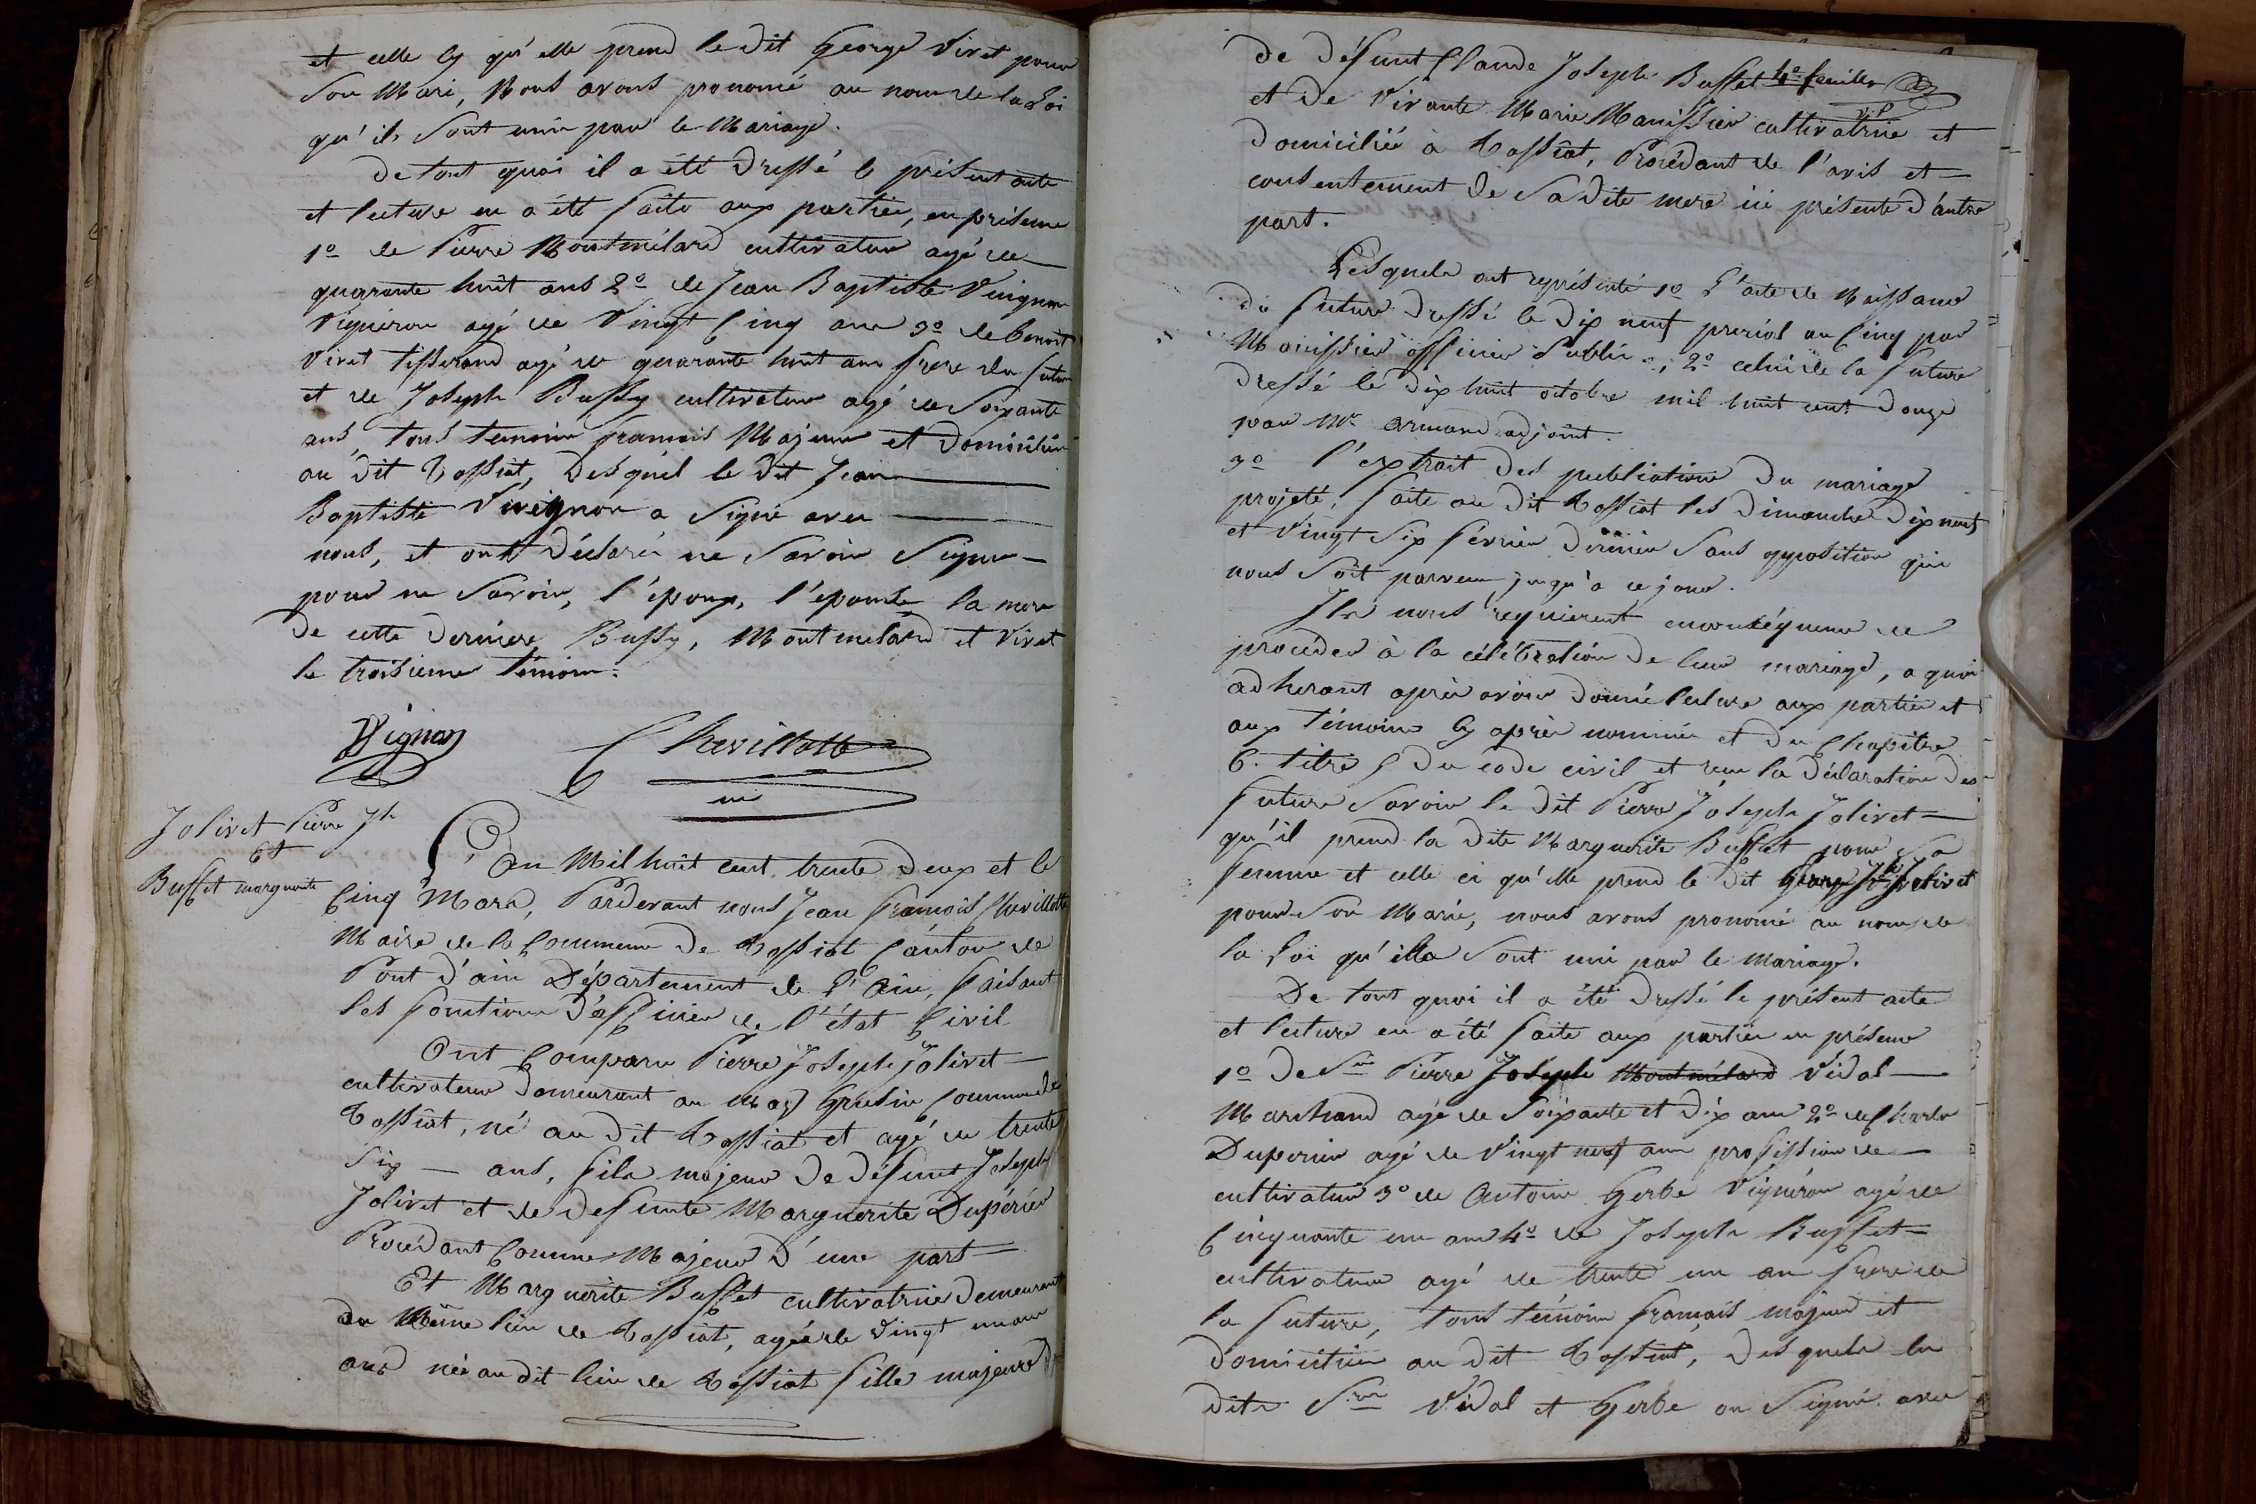 et celle cy qu'elle prend le dit George Viret pour
Son Mari, Nous avons prononcé au nom de la Loi
qu'ils Sont unis par le Mariage.
De tout quoi il a été Dressé le présent acte
et lecture en a été faite aux parties, en présence
1º de Pierre Montmélard cultivateur agé de
quarante huit ans 2º de Jean Baptiste Vuignon
Vigneron agé de Vingt Cinq ans 3º de Benoit
Viret tisserand agé de quarante huit ans frere du futur
et de Joseph Bussy cultivateur agé de Soixante
ans, tous temoins francais Majeurs et Domiciliés
au dit Tossiat, Desquel le dit Jean
Baptiste Vuignon a Signé avec
nous, et ont Déclaré ne Savoir Signer
pour ne Savoir, l'époux, l'épouse la mere
de cette derniere Bussy, Montmelard et Viret
le troisieme témoin.
Vignon Chevillotte
Jolivet Pierre Jh
Et
Buffet marguerite
L'an Mil huit cent trente Deux et le
Cinq Mars, Pardevant nous Jean François Chevillotte
Maire de la Commune De Tossiat Canton de
Pont d'ain Département de l'Ain, faisant
les fonctions D'officier de l'état Civil
Ont Comparu Pierre Joseph Jolivet
cultivateur Demeurant au Mas Grusin Commune de
Tossiat, né au Dit Tossiat et agé de trente
Six ans, fils majeur De Défunt Joseph
Jolivet et de Defunte Marguerite Dupérier
Procédant Comme Majeur D'une part
Et Marguerite Buffet cultivatrice Demeurant
au Même lieu de Tossiat, agée de Vingt un ans
ans née au dit lieu de Tossiat fille majeure
de Défunt Claude Joseph Buffet 4º feuillet
et De Vivante Marie Manissier cultivatrice et
V.P
Domiciliée à Tossiat, Procédant de l'avis et
consentement De Sa Dite mere ici présente D'autre
part.
Lesquels ont représenté 1º L'acte de Naissance
du futur Dressé le Dix neuf prerial an Cinq par
Manissier officier Public, 2º celui de la future
Dressé le Dix huit octobre mil huit cent Douze
par Mr armand adjoint.
3º l'extrait Des publications Du mariage
projeté, faite au Dit Tossiat les Dimanche Dix neuf
et Vingt Six fevrier Dernier Sans opposition qui
nous Soit parvenu jusqu'à ce jour.
Ils nous requierent enconséquence de
proceder à la célébration De leur mariage, a quoi
adherant après avoir Donné lecture aux parties et
aux témoins Cy après nommés et Du Chapitre
6. titre 5 Du code civil et reçu la Déclaration Des
futurs Savoir le Dit Pierre Joseph Jolivet
qu'il prend la Dite Marguerite Buffet pour Sa
femme et celle ci qu'elle prend le Dit Jolivet
pour Son Mari, nous avons prononcé au nom de
la Loi qu'ils Sont unis par le mariage.
De tout quoi il a été Dressé le présent acte
et lecture en a été faite aux parties en présence
1º De Sieur Pierre Joseph Montmélard Vidal
Marchand agé de Soixante et Dix ans 2º de Charles
Duperier agé de Vingt neuf ans profession de
cultivateur 3º de Antoine Gerbe Vigneron agé de
Cinquante un ans 4º de Joseph Buffet
cultivateur agé de trente un an frere de
la future, tous témoins français majeurs et
Domiciliés au dit Tossiat, Desquels les
dits Srs Vidal et Gerbe on Signé avec